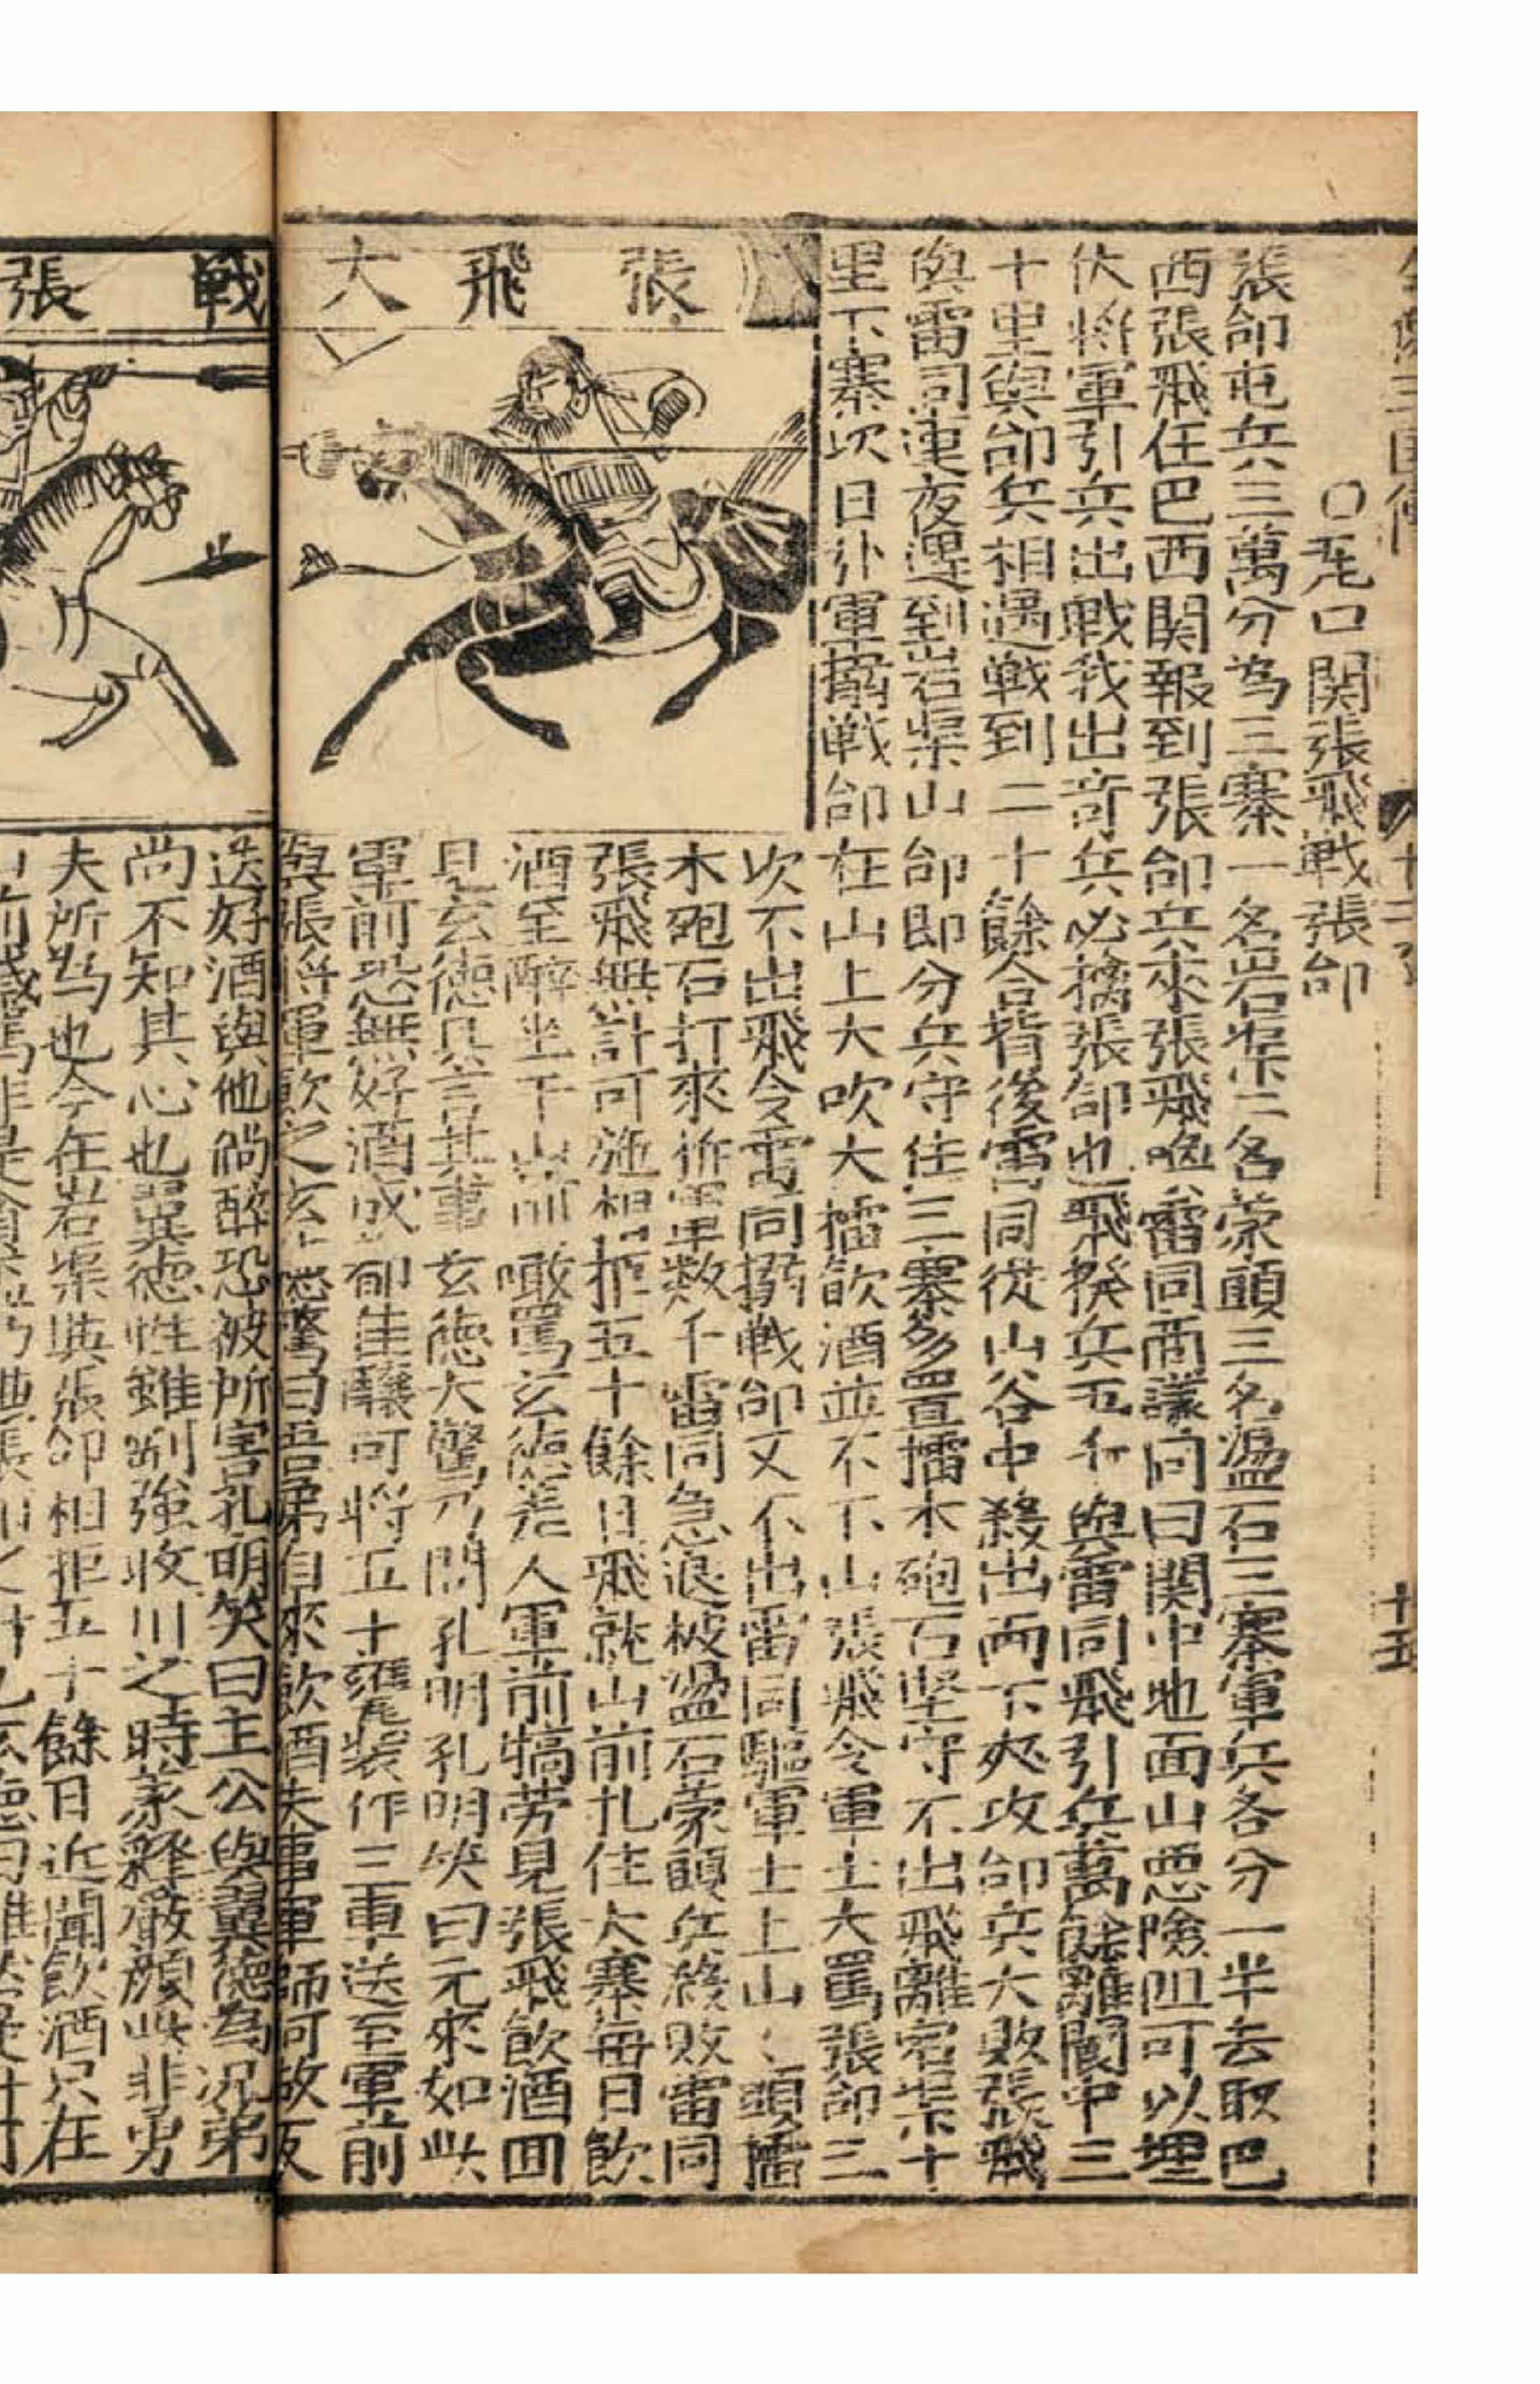 ○瓦口関張飛戰張郃
張郃屯兵三萬分為三寨一名岩渠二名蒙頭三名盪石三寨軍兵各分一半去取巴
西張飛在巴西関報到張郃兵來張飛喚雷同商議同曰関中地面山悪險阻可以埋
伏將軍引兵出戰我出奇兵必擒張郃也飛撥兵五千與雷同飛引兵萬餘離閬中三
十里與郃兵相遇戰到二十餘合背後雷同從山谷中殺出兩下夾攻郃兵大敗張飛
與雷同連夜趕到岩渠山郃即分兵守住三寨多置擂木砲石坚守不出飛離宕渠十
里下寨次日引軍搦戰郃在山上大吹大擂飲酒並不下山張飛令軍士大罵張郃三
次不出飛令雷同搦戰郃又不出雷同驅軍士上山山頭擂
木砲石打來折軍数千雷同急退被盪石蒙頭兵殺敗雷同
張飛無計可施相拒五十餘日飛就山前扎住大寨每日飲
酒至醉坐于山前噉罵玄德差人軍前犒劳見張飛飲酒回
見玄德具言其事玄德大驚乃問孔明孔明笑曰元來如此
軍前恐無好酒成都佳釀可將五十甕裝作三車送至軍前
與張將軍飲之玄德驚曰吾弟自來飲酒失事軍師何故反
送好酒與他倘醉恐被所害孔明笑曰主公與翼德為兄弟
尚不知其心也翼德性雖剛強收川之時義釋嚴顔此非勇
夫所為也今在岩渠與張郃相拒五十餘日近聞飲酒只在
張飛大
戰張
十五